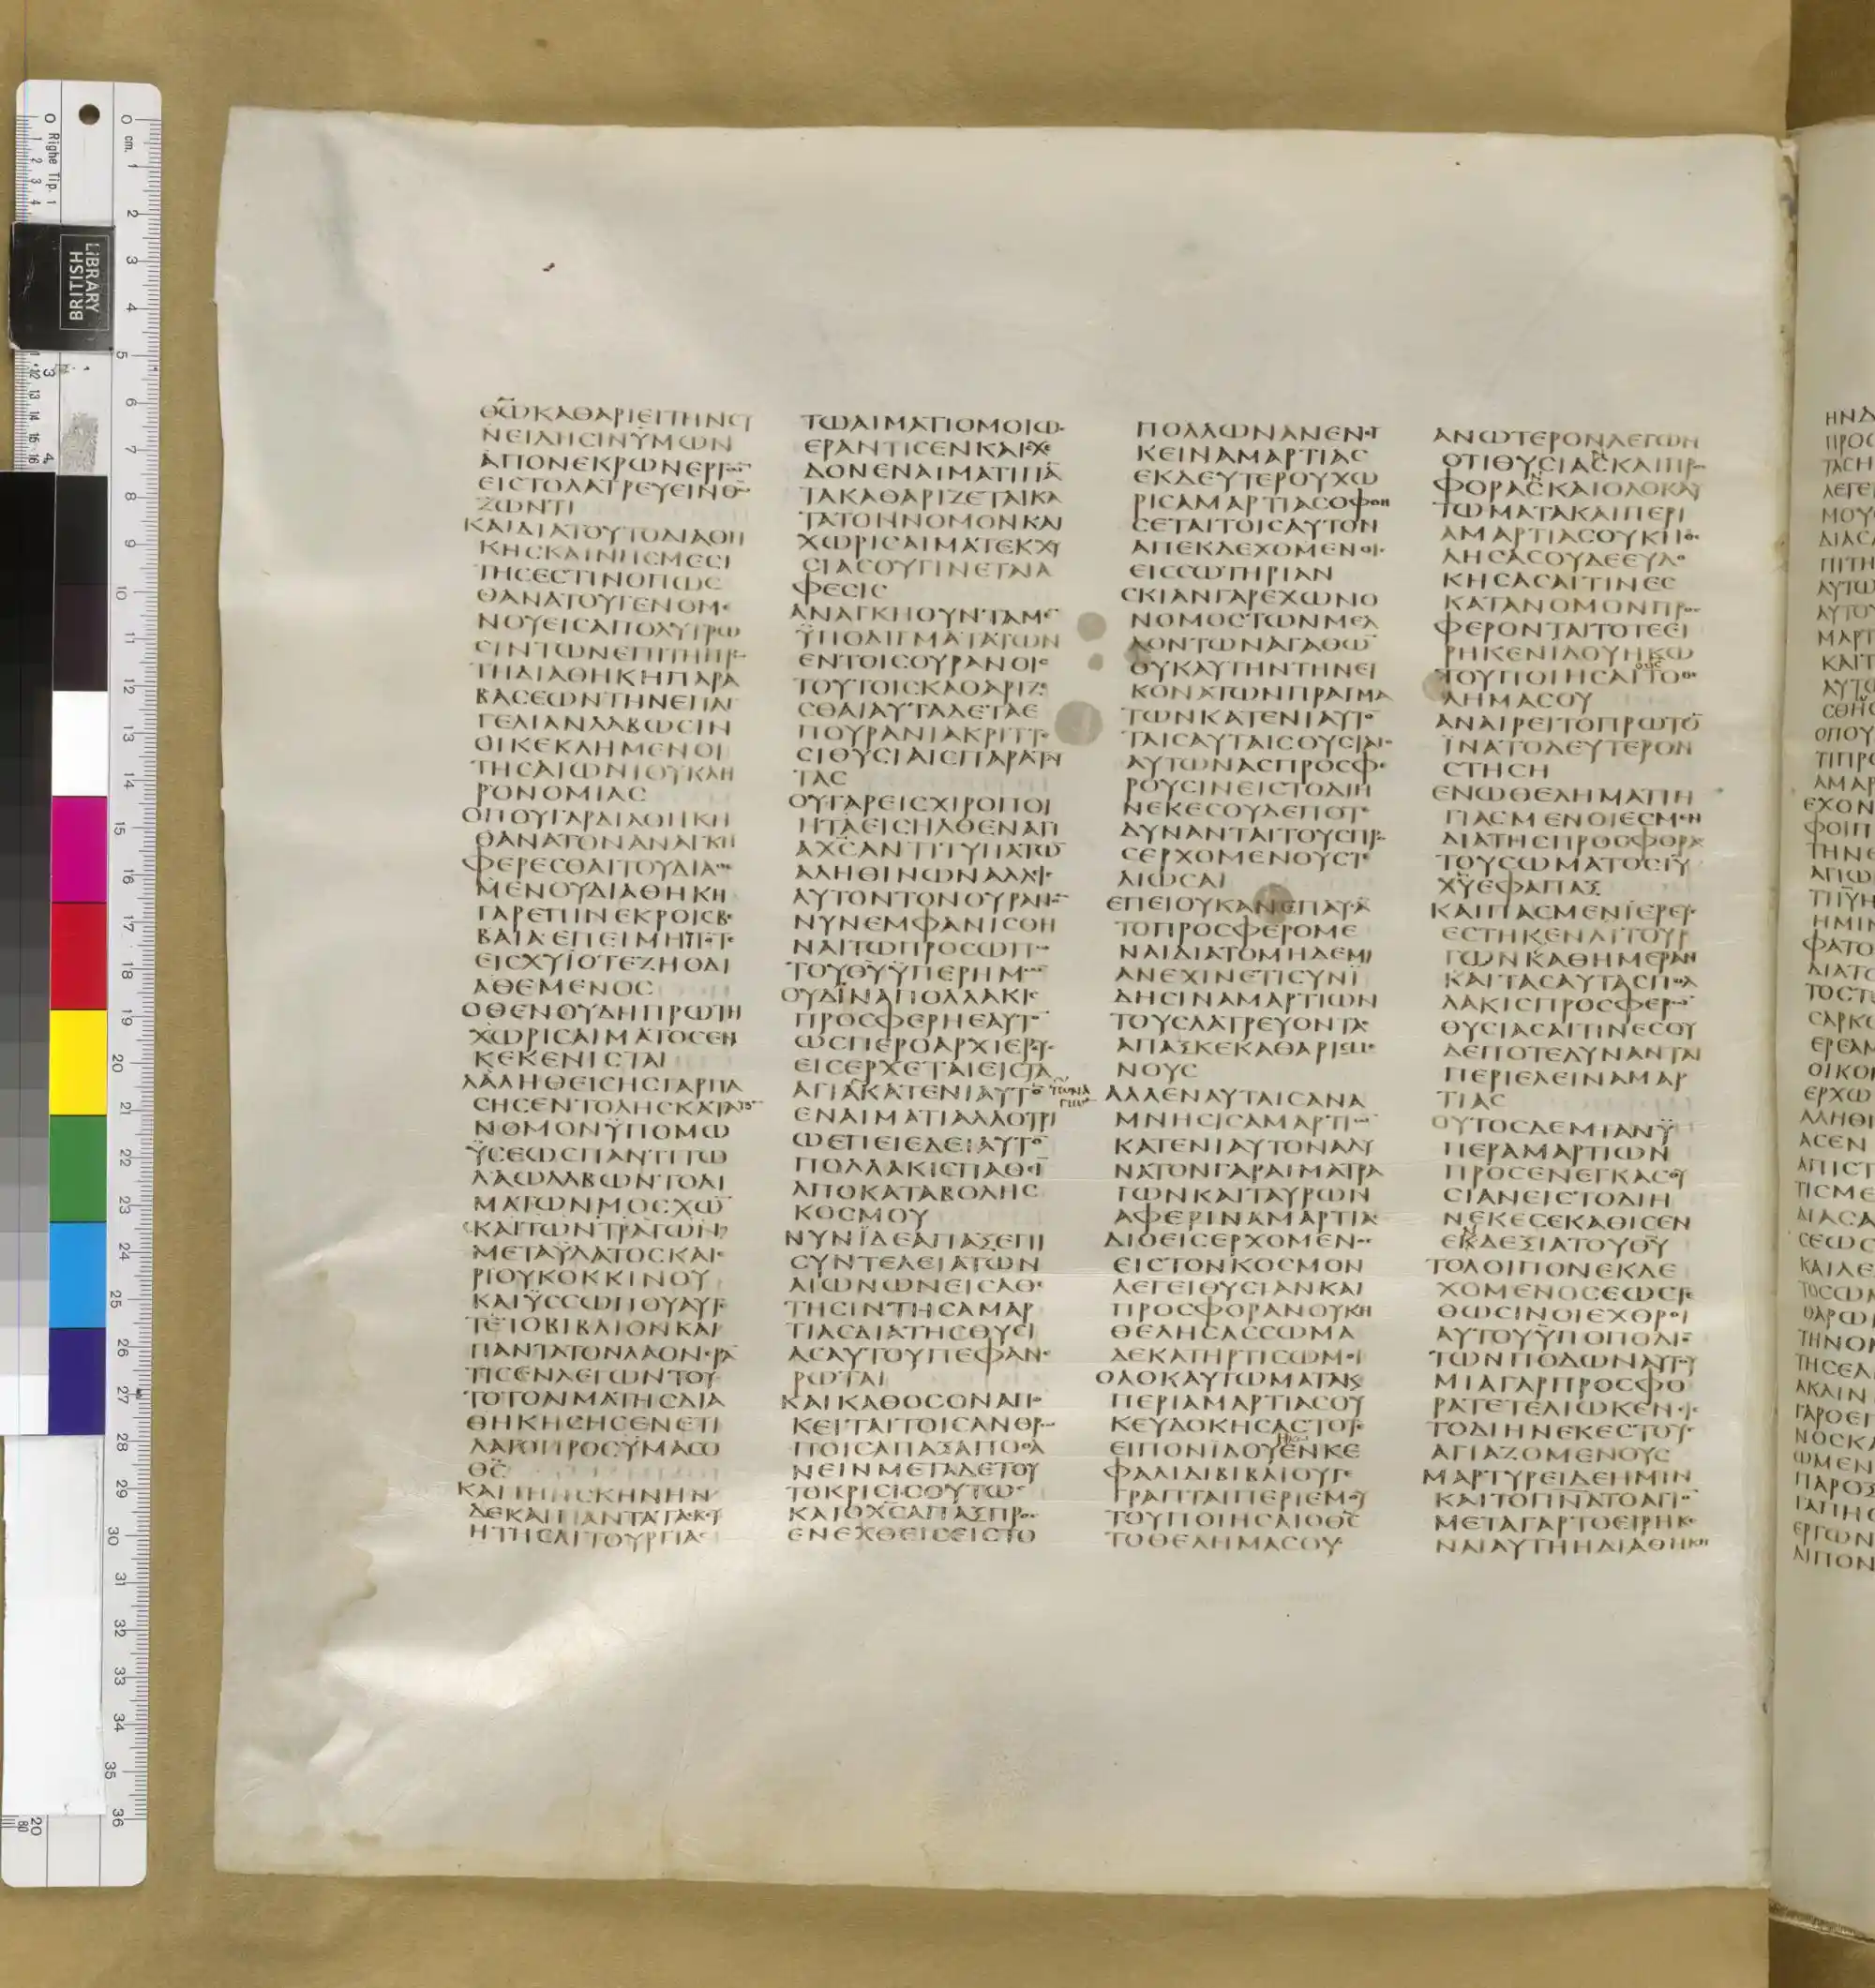 ΘΩ̅ ΚΑΘΑΡΙΕΙ ΤΗΝ ϹΥ
ΝΕΙΔΗϹΙΝ ΫΜΩΝ
ΑΠΟ ΝΕΚΡΩΝ ΕΡΓΩ̅
ΕΙϹ ΤΟ ΛΑΤΡΕΥΕΙΝ ΘΩ̅
ΖΩΝΤΙ
ΚΑΙ ΔΙΑ ΤΟΥΤΟ ΔΙΑΘΗ
ΚΗϹ ΚΑΙΝΗϹ ΜΕϹΙ
ΤΗϹ ΕϹΤΙΝ ΟΠΩϹ
ΘΑΝΑΤΟΥ ΓΕΝΟΜΕ
ΝΟΥ ΕΙϹ ΑΠΟΛΥΤΡΩ
ϹΙΝ ΤΩΝ ΕΠΙ ΤΗ ΠΡΩ
ΤΗ ΔΙΑΘΗΚΗ ΠΑΡΑ
ΒΑϹΕΩΝ ΤΗΝ ΕΠΑΓ
ΓΕΛΙΑΝ ΛΑΒΩϹΙΝ
ΟΙ ΚΕΚΛΗΜΕΝΟΙ
ΤΗϹ ΑΙΩΝΙΟΥ ΚΛΗ
ΡΟΝΟΜΙΑϹ
ΟΠΟΥ ΓΑΡ ΔΙΑΘΗΚΗ
ΘΑΝΑΤΟΝ ΑΝΑΓΚΗ
ΦΕΡΕϹΘΑΙ ΤΟΥ ΔΙΑΘΕ
ΜΕΝΟΥ ΔΙΑΘΗΚΗ
ΓΑΡ ΕΠΙ ΝΕΚΡΟΙϹ ΒΕ
ΒΑΙΑ ΕΠΕΙ ΜΗΠΟΤΕ
ΕΙϹΧΥΪ ΟΤΕ ΖΗ Ο ΔΙ
ΑΘΕΜΕΝΟϹ
ΟΘΕΝ ΟΥΔ Η ΠΡΩΤΗ
ΧΩΡΙϹ ΑΙΜΑΤΟϹ ΕΝ
ΚΕΚΕΝΙϹΤΑΙ
ΛΑΛΗΘΕΙϹΗϹ ΓΑΡ ΠΑ
ϹΗϹ ΕΝΤΟΛΗϹ ΚΑΤΑ ΤΟ̅
ΝΟΜΟΝ ΫΠΟ ΜΩ
ΫϹΕΩϹ ΠΑΝΤΙ ΤΩ
ΛΑΩ ΛΑΒΩΝ ΤΟ ΑΙ
ΜΑ ΤΩΝ ΜΟϹΧΩ̅
ΚΑΙ ΤΩΝ ΤΡΑΓΩΝ
ΜΕΤΑ ΫΔΑΤΟϹ ΚΑΙ Ε
ΡΙΟΥ ΚΟΚΚΙΝΟΥ
ΚΑΙ ΫϹϹΩΠΟΥ ΑΥΤΟ
ΤΕ ΤΟ ΒΙΒΛΙΟΝ ΚΑΙ
ΠΑΝΤΑ ΤΟΝ ΛΑΟΝ ΕΡΑ̅
ΤΙϹΕΝ ΛΕΓΩΝ ΤΟΥ
ΤΟ ΤΟ ΑΙΜΑ ΤΗϹ ΔΙΑ
ΘΗΚΗϹ ΗϹ ΕΝΕΤΙ
ΛΑΤΟ ΠΡΟϹ ΫΜΑϹ Ο
ΘϹ̅
ΚΑΙ ΤΗΝ ϹΚΗΝΗΝ
ΔΕ ΚΑΙ ΠΑΝΤΑ ΤΑ ϹΚΕΥ
Η ΤΗϹ ΛΙΤΟΥΡΓΙΑϹ
ΤΩ ΑΙΜΑΤΙ ΟΜΟΙΩϹ
ΕΡΑΝΤΙϹΕΝ ΚΑΙ ϹΧΕ
ΔΟΝ ΕΝ ΑΙΜΑΤΙ ΠΑ̅
ΤΑ ΚΑΘΑΡΙΖΕΤΑΙ ΚΑ
ΤΑ ΤΟΝ ΝΟΜΟΝ ΚΑΙ
ΧΩΡΙϹ ΑΙΜΑΤΕΚΧΥ
ϹΙΑϹ ΟΥ ΓΙΝΕΤΑΙ Α
ΦΕϹΙϹ
ΑΝΑΓΚΗ ΟΥΝ ΤΑ ΜΕ̅
ΫΠΟΔΙΓΜΑΤΑ ΤΩΝ
ΕΝ ΤΟΙϹ ΟΥΡΑΝΟΙϹ
ΤΟΥΤΟΙϹ ΚΑΘΑΡΙΖΕ
ϹΘΑΙ ΑΥΤΑ ΔΕ ΤΑ Ε
ΠΟΥΡΑΝΙΑ ΚΡΙΤΤΟ
ϹΙ ΘΥϹΙΑΙϹ ΠΑΡΑ ΤΑΥ
ΤΑϹ
ΟΥ ΓΑΡ ΕΙϹ ΧΙΡΟΠΟΙ
ΗΤΑ ΕΙϹΗΛΘΕΝ ΑΓΙ
Α ΧϹ̅ ΑΝΤΙΤΥΠΑ ΤΩ̅
ΑΛΗΘΙΝΩΝ ΑΛΛ ΕΙϹ
ΑΥΤΟΝ ΤΟΝ ΟΥΡΑΝΟ̅
ΝΥΝ ΕΜΦΑΝΙϹΘΗ
ΝΑΙ ΤΩ ΠΡΟϹΩΠΩ
ΤΟΥ ΘΥ̅ ΫΠΕΡ ΗΜΩ̅
ΟΥΔ ΪΝΑ ΠΟΛΛΑΚΙϹ
ΠΡΟϹΦΕΡΗ ΕΑΥΤΟ̅
ΩϹΠΕΡ Ο ΑΡΧΙΕΡΕΥϹ
ΕΙϹΕΡΧΕΤΑΙ ΕΙϹ ΤΑ
ΑΓΙΑ ΚΑΤ ΕΝΙΑΥΤΟ̅
ΤΩΝ Α
ΓΙΩ̅
ΕΝ ΑΙΜΑΤΙ ΑΛΛΟΤΡΙ
Ω ΕΠΕΙ ΕΔΕΙ ΑΥΤΟ̅
ΠΟΛΛΑΚΙϹ ΠΑΘΕΙ̅
ΑΠΟ ΚΑΤΑΒΟΛΗϹ
ΚΟϹΜΟΥ
ΝΥΝΪ ΔΕ ΑΠΑΞ ΕΠΙ
ϹΥΝΤΕΛΕΙΑ ΤΩΝ
ΑΙΩΝΩΝ ΕΙϹ ΑΘΕ
ΤΗϹΙΝ ΤΗϹ ΑΜΑΡ
ΤΙΑϹ ΔΙΑ ΤΗϹ ΘΥϹΙ
ΑϹ ΑΥΤΟΥ ΠΕΦΑΝΕ
ΡΩΤΑΙ
ΚΑΙ ΚΑΘ ΟϹΟΝ ΑΠΟ
ΚΕΙΤΑΙ ΤΟΙϹ ΑΝΘΡΩ
ΠΟΙϹ ΑΠΑΞ ΑΠΟΘΑ
ΝΕΙΝ ΜΕΤΑ ΔΕ ΤΟΥ
ΤΟ ΚΡΙϹΙϹ ΟΥΤΩϹ
ΚΑΙ Ο ΧϹ̅ ΑΠΑΞ ΠΡΟϹ
ΕΝΕΧΘΕΙϹ ΕΙϹ ΤΟ
ΠΟΛΛΩΝ ΑΝΕΝΕΓ
ΚΕΙΝ ΑΜΑΡΤΙΑϹ
ΕΚ ΔΕΥΤΕΡΟΥ ΧΩ
ΡΙϹ ΑΜΑΡΤΙΑϹ ΟΦΘΗ
ϹΕΤΑΙ ΤΟΙϹ ΑΥΤΟΝ
ΑΠΕΚΔΕΧΟΜΕΝΟΙϹ
ΕΙϹ ϹΩΤΗΡΙΑΝ
ϹΚΙΑΝ ΓΑΡ ΕΧΩΝ Ο
ΝΟΜΟϹ ΤΩΝ ΜΕΛ
ΛΟΝΤΩΝ ΑΓΑΘΩ̅
ΟΥΚ ΑΥΤΗΝ ΤΗΝ ΕΙ
ΚΟΝΑ ΤΩΝ ΠΡΑΓΜΑ
ΤΩΝ ΚΑΤ ΕΝΙΑΥΤΟ̅
ΤΑΙϹ ΑΥΤΑΙϹ ΟΥϹΙΑΙϹ
ΑΥΤΩΝ ΑϹ ΠΡΟϹΦΕ
ΡΟΥϹΙΝ ΕΙϹ ΤΟ ΔΙΗ
ΝΕΚΕϹ ΟΥΔΕΠΟΤΕ
ΔΥΝΑΝΤΑΙ ΤΟΥϹ ΠΡΟ
ϹΕΡΧΟΜΕΝΟΥϹ ΤΕ
ΛΙΩϹΑΙ
ΕΠΕΙ ΟΥΚ ΑΝ ΕΠΑΥϹΑ̅
ΤΟ ΠΡΟϹΦΕΡΟΜΕ
ΝΑΙ ΔΙΑ ΤΟ ΜΗΔΕΜΙ
ΑΝ ΕΧΙΝ ΕΤΙ ϹΥΝΪ
ΔΗϹΙΝ ΑΜΑΡΤΙΩΝ
ΤΟΥϹ ΛΑΤΡΕΥΟΝΤΑϹ
ΑΠΑΞ ΚΕΚΑΘΑΡΙϹΜΕ
ΝΟΥϹ
ΑΛΛ ΕΝ ΑΥΤΑΙϹ ΑΝΑ
ΜΝΗϹΙϹ ΑΜΑΡΤΙΩ̅
ΚΑΤ ΕΝΙΑΥΤΟΝ ΑΔΥ
ΝΑΤΟΝ ΓΑΡ ΑΙΜΑ ΤΡΑ
ΓΩΝ ΚΑΙ ΤΑΥΡΩΝ
ΑΦΕΡΙΝ ΑΜΑΡΤΙΑϹ
ΔΙΟ ΕΙϹΕΡΧΟΜΕΝΟϹ
ΕΙϹ ΤΟΝ ΚΟϹΜΟΝ
ΛΕΓΕΙ ΘΥϹΙΑΝ ΚΑΙ
ΠΡΟϹΦΟΡΑΝ ΟΥΚ Η
ΘΕΛΗϹΑϹ ϹΩΜΑ
ΔΕ ΚΑΤΗΡΤΙϹΩ ΜΟΙ
ΟΛΟΚΑΥΤΩΜΑΤΑ Κ
ΠΕΡΙ ΑΜΑΡΤΙΑϹ ΟΥ
Κ ΕΥΔΟΚΗϹΑϹ ΤΟΤΕ
ΗΚΩ
ΕΙΠΟΝ ΪΔΟΥ ΕΝ ΚΕ
ΦΑΛΙΔΙ ΒΙΒΛΙΟΥ ΓΕ
ΓΡΑΠΤΑΙ ΠΕΡΙ ΕΜΟΥ
ΤΟΥ ΠΟΙΗϹΑΙ Ο ΘϹ̅
ΤΟ ΘΕΛΗΜΑ ϹΟΥ
ΑΝΩΤΕΡΟΝ ΛΕΓΩΝ
ΟΤΙ ΘΥϹΙΑϹ ΚΑΙ ΠΡΟϹ
ΦΟΡΑϹ ΚΑΙ ΟΛΟΚΑΥ
ΤΩΜΑΤΑ ΚΑΙ ΠΕΡΙ
ΑΜΑΡΤΙΑϹ ΟΥΚ ΗΘΕ
ΛΗϹΑϹ ΟΥΔΕ ΕΥΔΟ
ΚΗϹΑϹ ΑΙΤΙΝΕϹ
ΚΑΤΑ ΝΟΜΟΝ ΠΡΟϹ
ΦΕΡΟΝΤΑΙ ΤΟΤΕ ΕΙ
ΡΗΚΕΝ ΙΔΟΥ ΗΚΩ
Ο ΘϹ̅
ΤΟΥ ΠΟΙΗϹΑΙ ΤΟ ΘΕ
ΛΗΜΑ ϹΟΥ
ΑΝΑΙΡΕΙ ΤΟ ΠΡΩΤΟ̅
ΪΝΑ ΤΟ ΔΕΥΤΕΡΟΝ
ϹΤΗϹΗ
ΕΝ Ω ΘΕΛΗΜΑΤΙ Η
ΓΙΑϹΜΕΝΟΙ ΕϹΜΕΝ
ΔΙΑ ΤΗϹ ΠΡΟϹΦΟΡΑϹ
ΤΟΥ ϹΩΜΑΤΟϹ ΙΥ̅
ΧΥ̅ ΕΦΑΠΑΞ
ΚΑΙ ΠΑϹ ΜΕΝ ΪΕΡΕΥϹ
ΕϹΤΗΚΕΝ ΛΙΤΟΥΡ
ΓΩΝ ΚΑΘ ΗΜΕΡΑΝ
ΚΑΙ ΤΑϹ ΑΥΤΑϹ ΠΟΛ
ΛΑΚΙϹ ΠΡΟϹΦΕΡΩ̅
ΘΥϹΙΑϹ ΑΙΤΙΝΕϹ ΟΥ
ΔΕΠΟΤΕ ΔΥΝΑΝΤΑΙ
ΠΕΡΙΕΛΕΙΝ ΑΜΑΡ
ΤΙΑϹ
ΟΥΤΟϹ ΔΕ ΜΙΑΝ Ϋ
ΠΕΡ ΑΜΑΡΤΙΩΝ
ΠΡΟϹΕΝΕΓΚΑϹ ΘΥ
ϹΙΑΝ ΕΙϹ ΤΟ ΔΙΗ
ΝΕΚΕϹ ΕΚΑΘΙϹΕΝ
ΕΚ ΔΕΞΙΑ ΤΟΥ ΘΥ̅
ΤΟ ΛΟΙΠΟΝ ΕΚΔΕ
ΧΟΜΕΝΟϹ ΕΩϹ ΤΕ
ΘΩϹΙΝ ΟΙ ΕΧΘΡΟΙ
ΑΥΤΟΥ ΫΠΟΠΟΔΙΟ̅
ΤΩΝ ΠΟΔΩΝ ΑΥΤΟΥ
ΜΙΑ ΓΑΡ ΠΡΟϹΦΟ
ΡΑ ΤΕΤΕΛΙΩΚΕΝ ΕΙϹ
ΤΟ ΔΙΗΝΕΚΕϹ ΤΟΥϹ
ΑΓΙΑΖΟΜΕΝΟΥϹ
ΜΑΡΤΥΡΕΙ ΔΕ ΗΜΙΝ
ΚΑΙ ΤΟ ΠΝΑ̅ ΤΟ ΑΓΙΟ̅
ΜΕΤΑ ΓΑΡ ΤΟ ΕΙΡΗΚΕ
ΝΑΙ ΑΥΤΗ Η ΔΙΑΘΗΚΗ